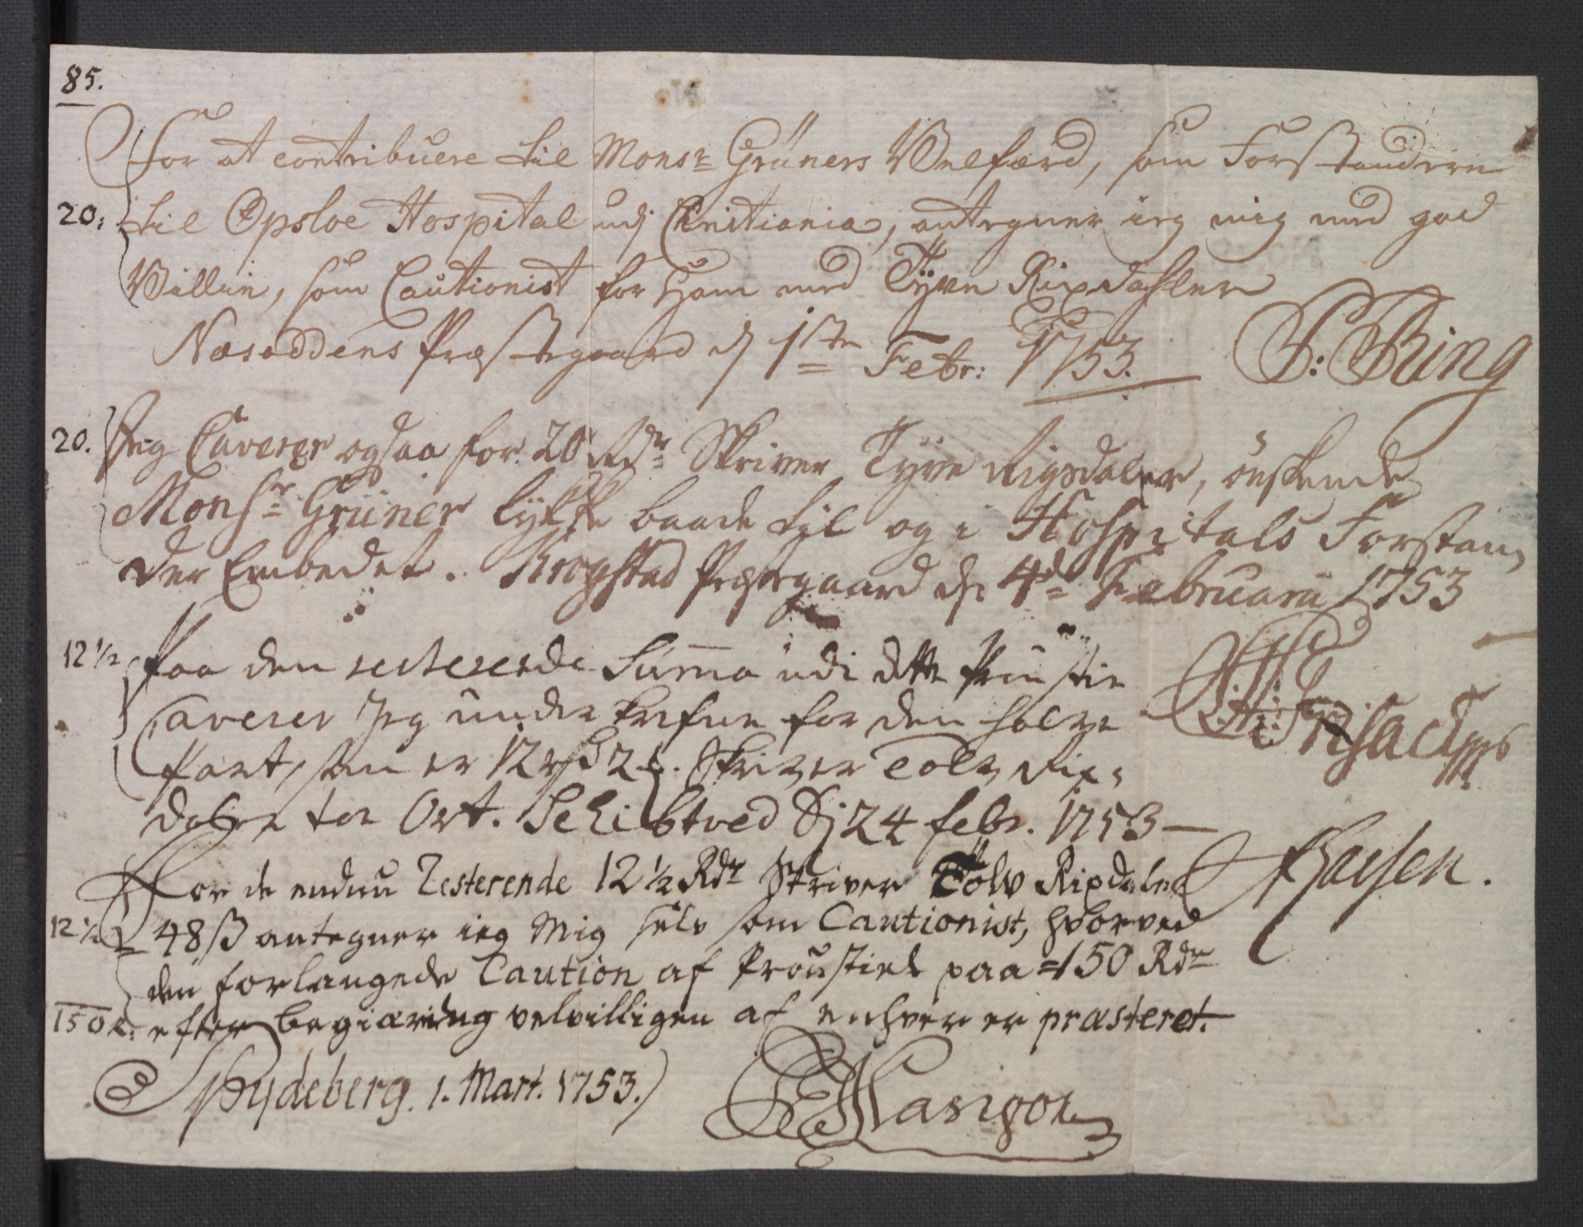 85.
For at contribuere til Monsr Grüners Velfærd, som Forstandere
20: til Opsloe Hospital udj Christiania, antegner ieg mig med god
Villie, som Cautionist for Ham med Tÿve Rixdahler
Næsoddens Præstegaard d 1ste Febr: 1753. S: Ring
20. Jeg Caverer ogsaa for 20 Rdr Skriver Tyve Rigsdaler, önskende
Monsr Grüner lykke baade til og i Hospitals Forstan
der Embedet. Krogstad Præstegaard d 4de Februarii 1753
12 1/2 Paa den resterende Summa udi dette Proustie
Caverer Jeg underskrefne for den halve
Part, som er 12 rd 2 Skriver Tolv Rix
daler toe Ort. Schibtved Dj 24 febr. 1753
For de endnu Resterende 12 1/2 Rdr Skriver Tolv Rixdaler
12 1/2 48 ß antegner ieg Mig selv som Cautionist, hvorved
den forlangede Caution af Proustiet paa 150 Rdr
150 r: efter begiæring velvilligen af enhver er præsteret.
Spydeberg. 1. Mart. 1753.